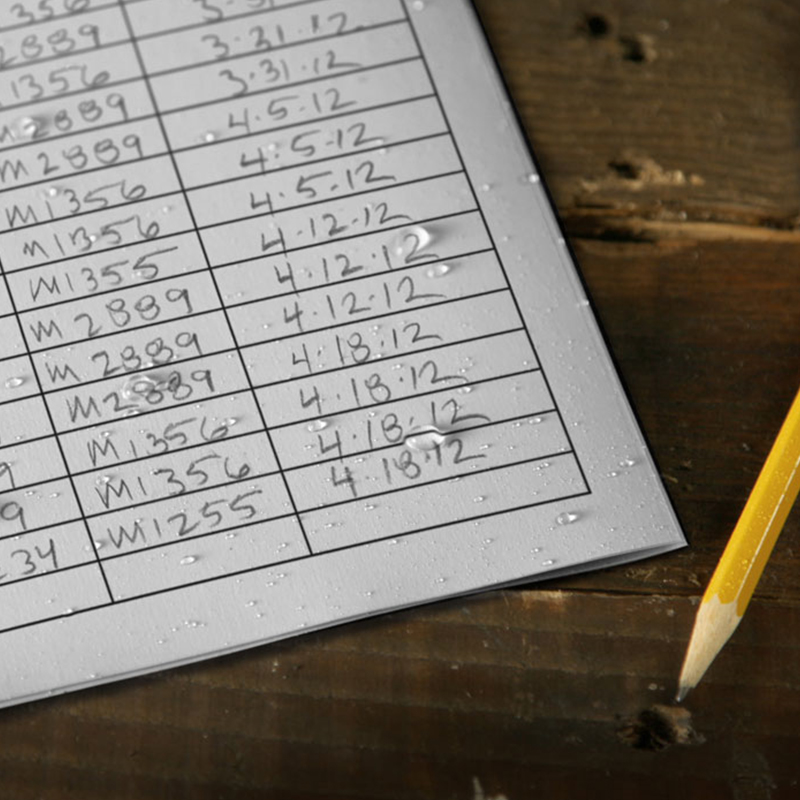 356
2889 3.31
1356 3.31.12
M2889 3.31.12
M2889 4.5.12
M1356 4.5.12
M1356 4.5.12
M1355 4.12.12
M2889 4.12.12
M2889 4.12.12
M2889 4.18.12
9 M1356 4.18.12
9 M1356 4.18.12
34 M1255 4.18.12